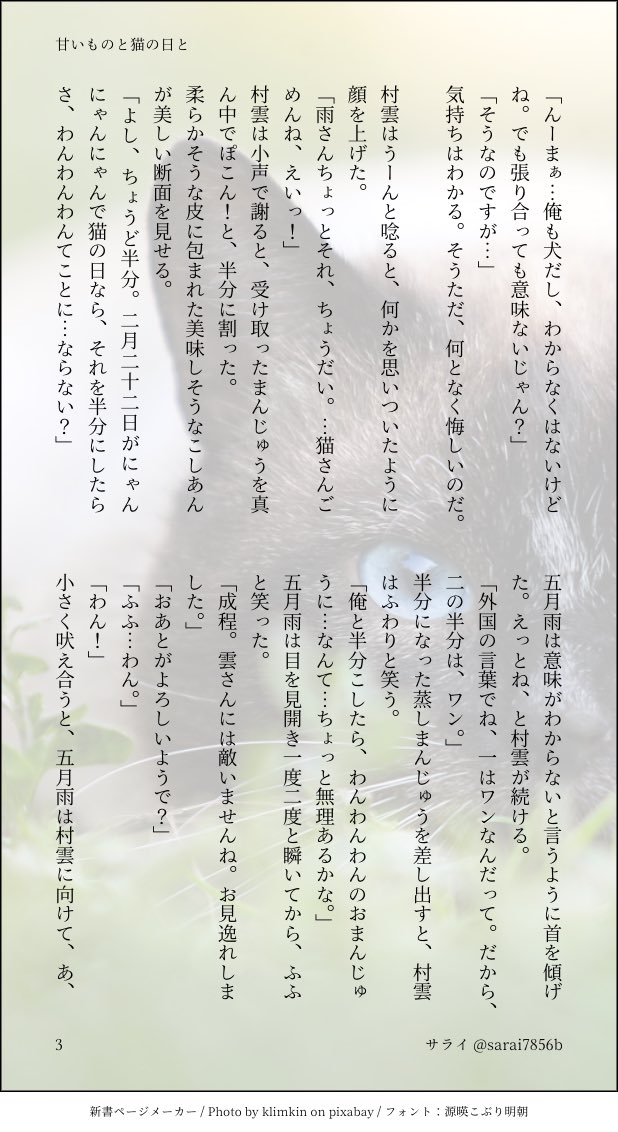 甘いものと猫の日と
「んーまぁ…俺も犬だし、わからなくはないけど
ね。でも張り合っても意味ないじゃん？」
「そうなのですが…」
気持ちはわかる。そうただ、何となく悔しいのだ。
村雲はうーんと唸ると、何かを思いついたように
顔を上げた。
「雨さんちょっとそれ、ちょうだい。…猫さんご
めんね、えいっ！」
村雲は小声で謝ると、受け取ったまんじゅうを真
ん中でぽこん！と、半分に割った。
柔らかそうな皮に包まれた美味しそうなこしあん
が美しい断面を見せる。
「よし、ちょうど半分。二月二十二日がにゃん
にゃんにゃんで猫の日なら、それを半分にしたら
さ、わんわんわんてことに…ならない？」
五月雨は意味がわからないと言うように首を傾げ
た。えっとね、と村雲が続ける。
「外国の言葉でね、一はワンなんだって。だから、
二の半分は、ワン。」
半分になった蒸しまんじゅうを差し出すと、村雲
はふわりと笑う。
「俺と半分こしたら、わんわんわんのおまんじゅ
うに…なんて…ちょっと無理あるかな。」
五月雨は目を見開き一度二度と瞬いてから、ふふ
と笑った。
「成程。雲さんには敵いませんね。お見逸れしま
した。」
「おあとがよろしいようで？」
「ふふ…わん。」
「わん！」
小さく吠え合うと、五月雨は村雲に向けて、あ、
3
サライ @sarai7856b
新書ページメーカー / Photo by klimkin on pixabay / フォント：源暎こぶり明朝